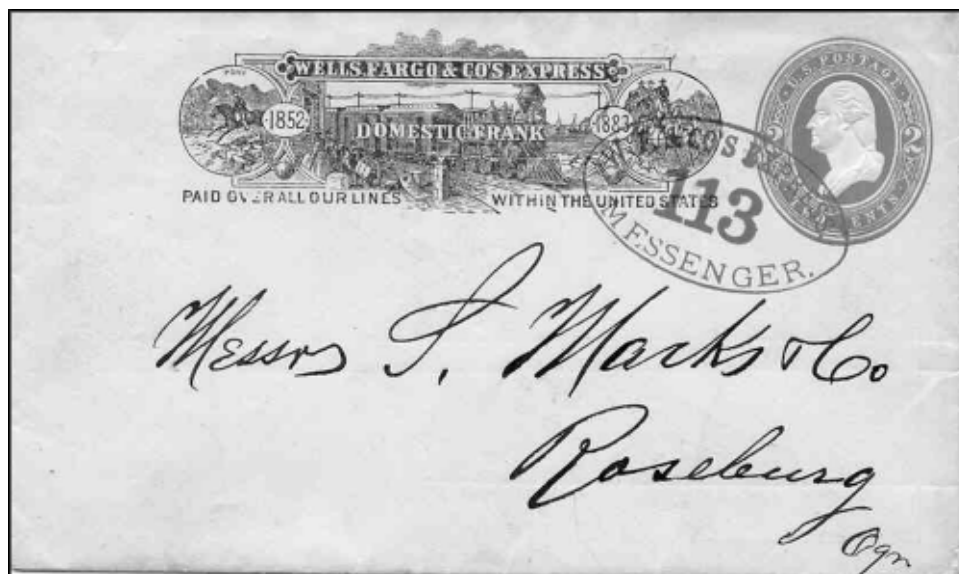 PONY
WELLS, FARGO & CO'S EXPRESS
1852
DOMESTIC FRANK
1883
PAID OVER ALL OUR LINES
WITHIN THE UNITED STATES
U.S. POSTAGE
2 2
TWO CENTS
CO'S
113
MESSENGER.
Messrs S. Marks & Co
Roseburg
Ogn